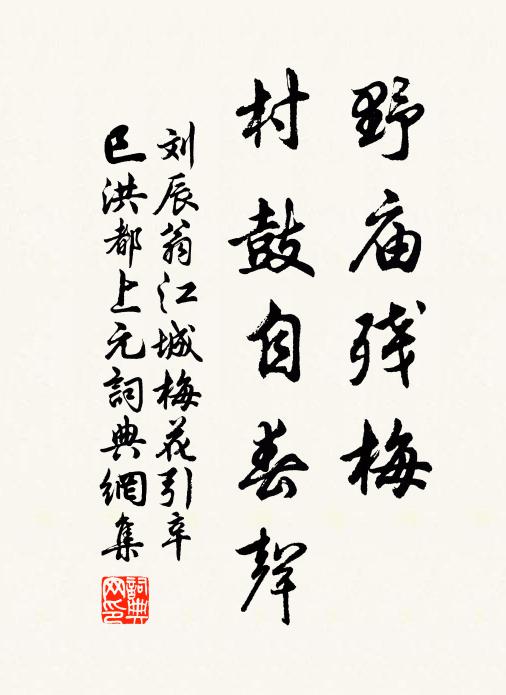 野庙残梅
村鼓自春聲
刘辰翁江城梅花引辛
巳洪都上元詞典網集
詞典网印